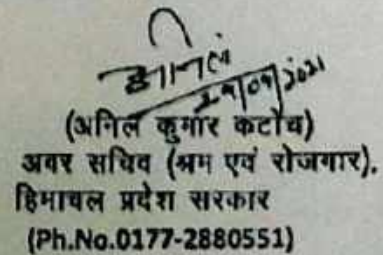 अनिल
29/09/2021
(अनिल कुमार कटोच)
अवर सचिव (श्रम एवं रोजगार),
हिमाचल प्रदेश सरकार
(Ph.No.0177-2880551)